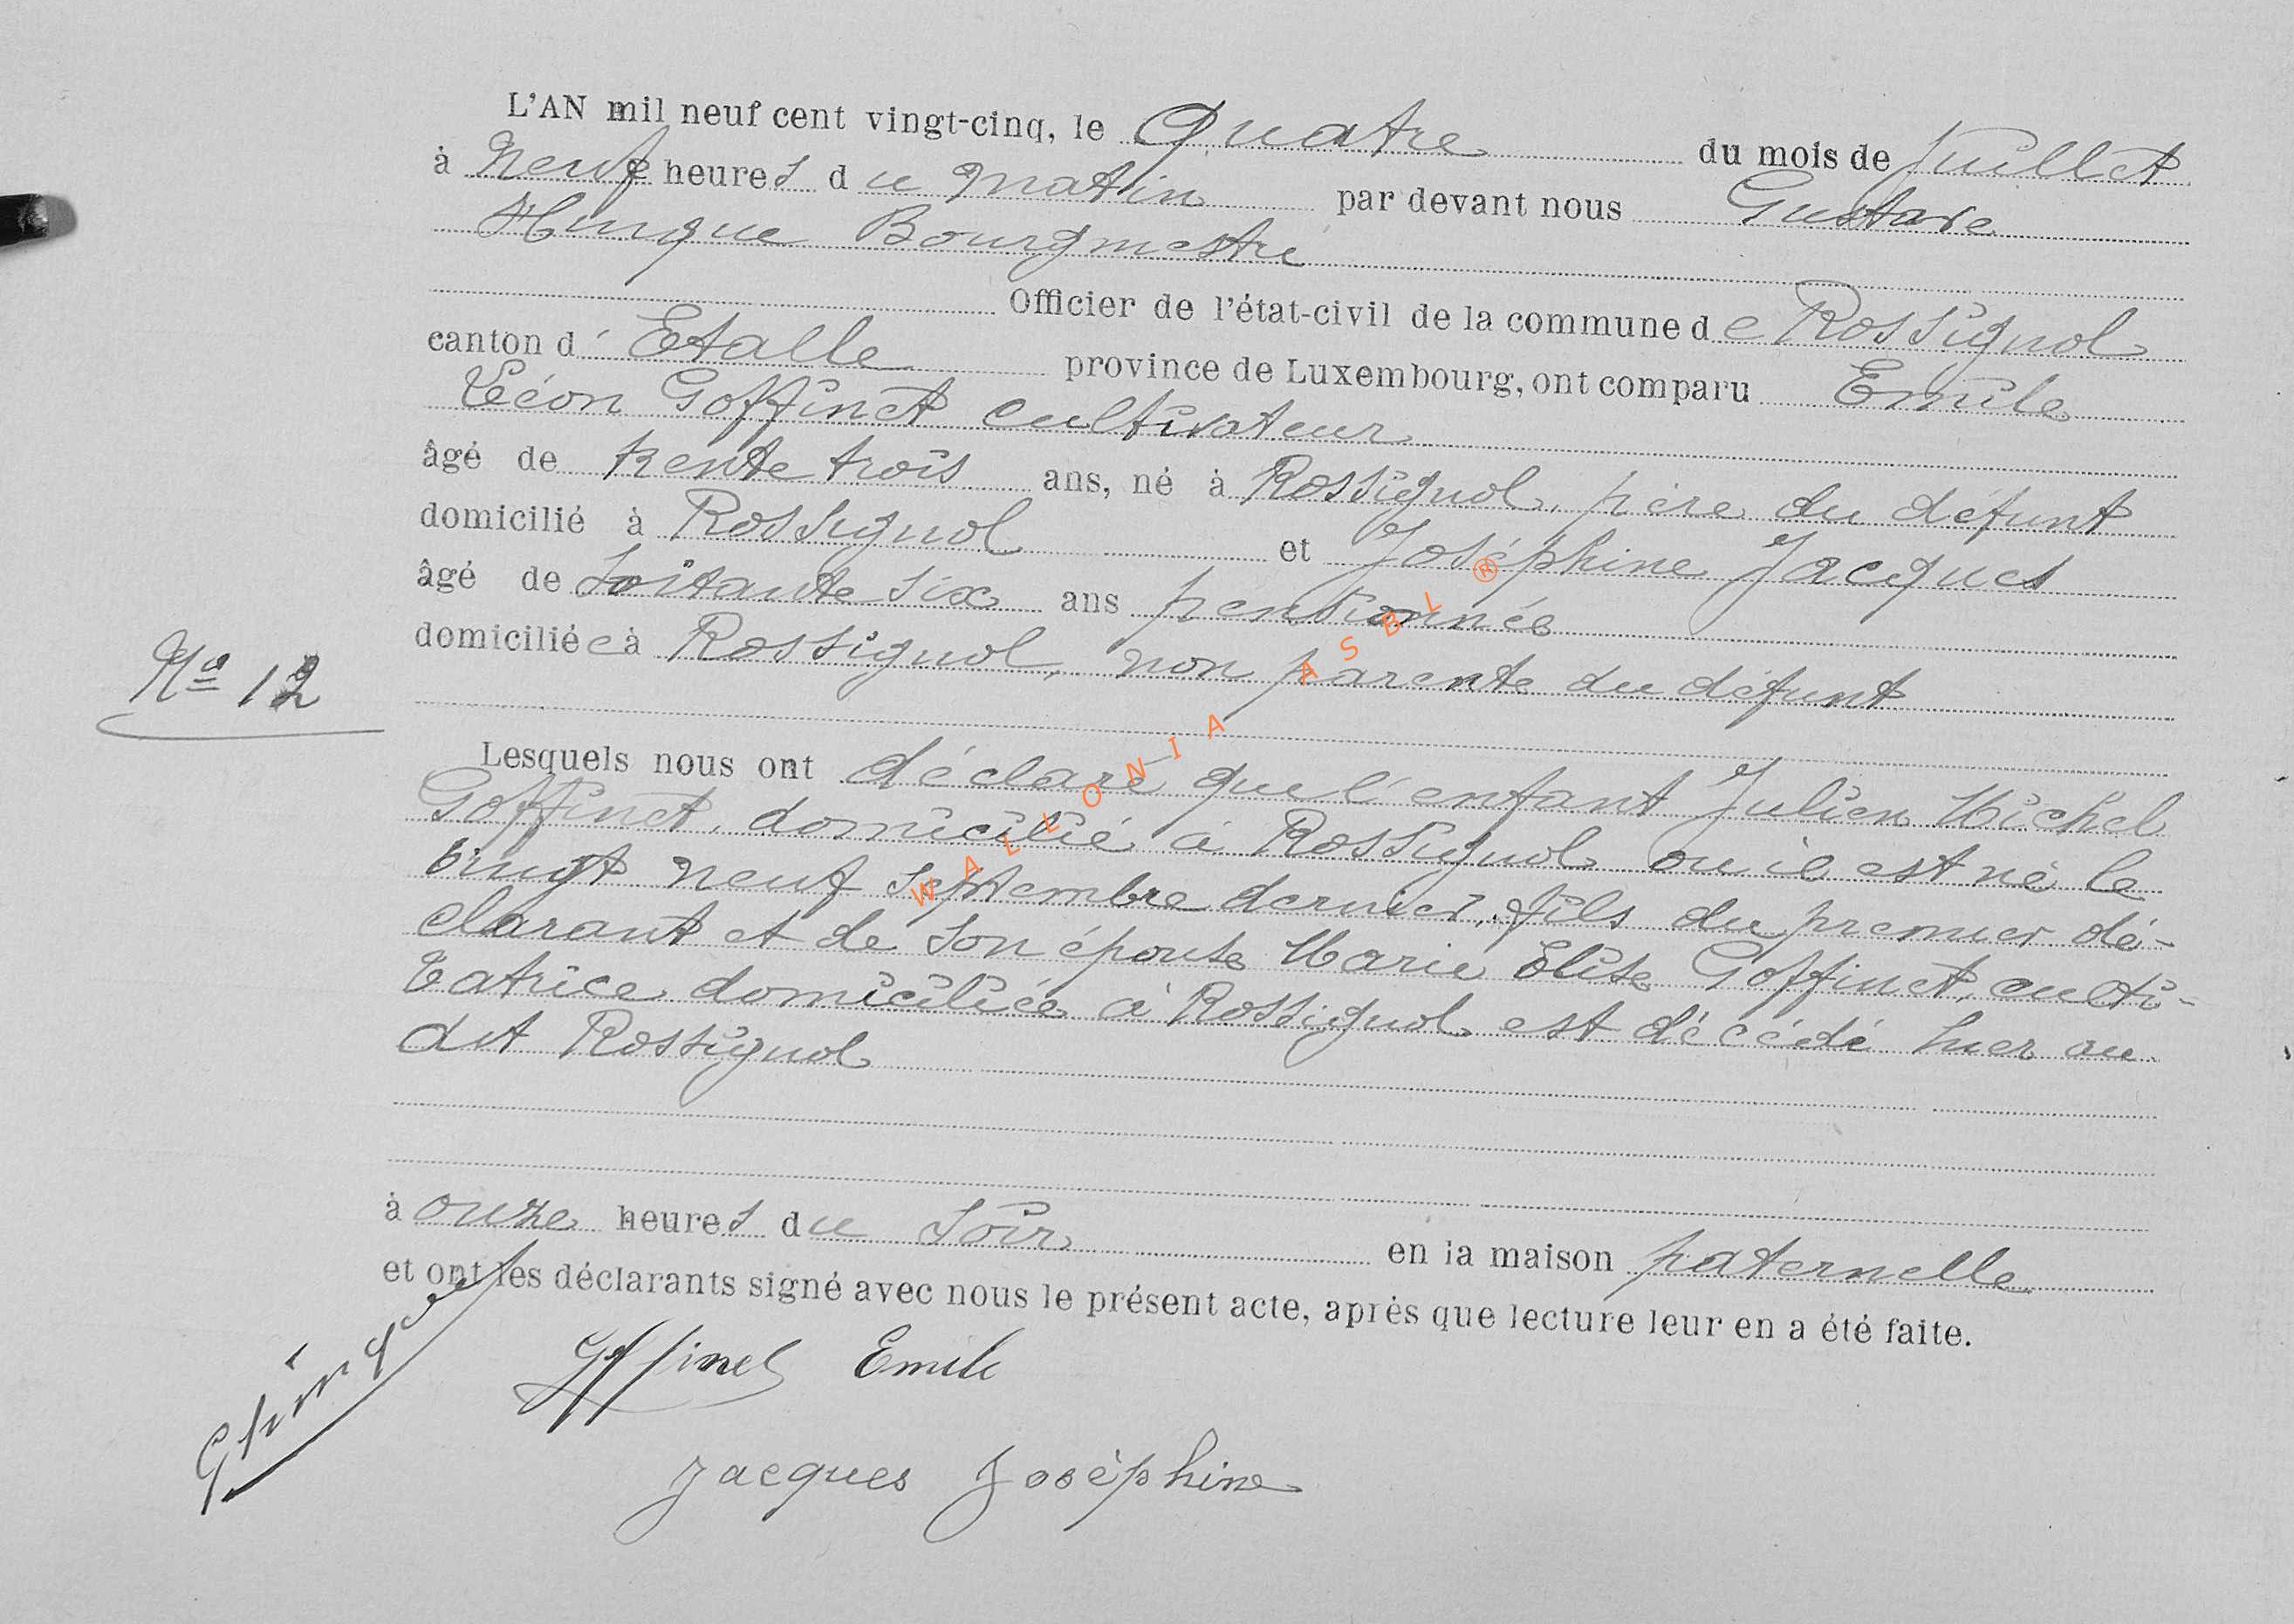 L'AN mil neuf cent vingt-cinq, le Quatre du mois de Juillet
à Neuf heures du matin par devant nous Gustave
Hinque Bourgmestre
Officier de l'état-civil de la commune de Rossignol
canton d'Etalle province de Luxembourg, ont comparu Emile
Léon Goffinet cultivateur
âgé de trente trois ans, né à Rossignol, père du défunt
domicilié à Rossignol et Joséphine Jacques
âgé de Soixante six ans pensionnée
domiciliée à Rossignol, non parente du défunt
Nº 12
Lesquels nous ont déclaré que l'enfant Julien Michel
Goffinet, domicilié à Rossignol ou il est né le
vingt neuf septembre dernier, fils du premier dé-
clarant et de son épouse Marie Elise Goffinet, culti-
vatrice domiciliée à Rossignol est décédé hier au
dit Rossignol
à onze heures du soir en la maison paternelle
et ont les déclarants signé avec nous le présent acte, après que lecture leur en a été faite.
GHinque
Goffinet Emile
Jacques Joséphine
WALLONIA ASBL ®